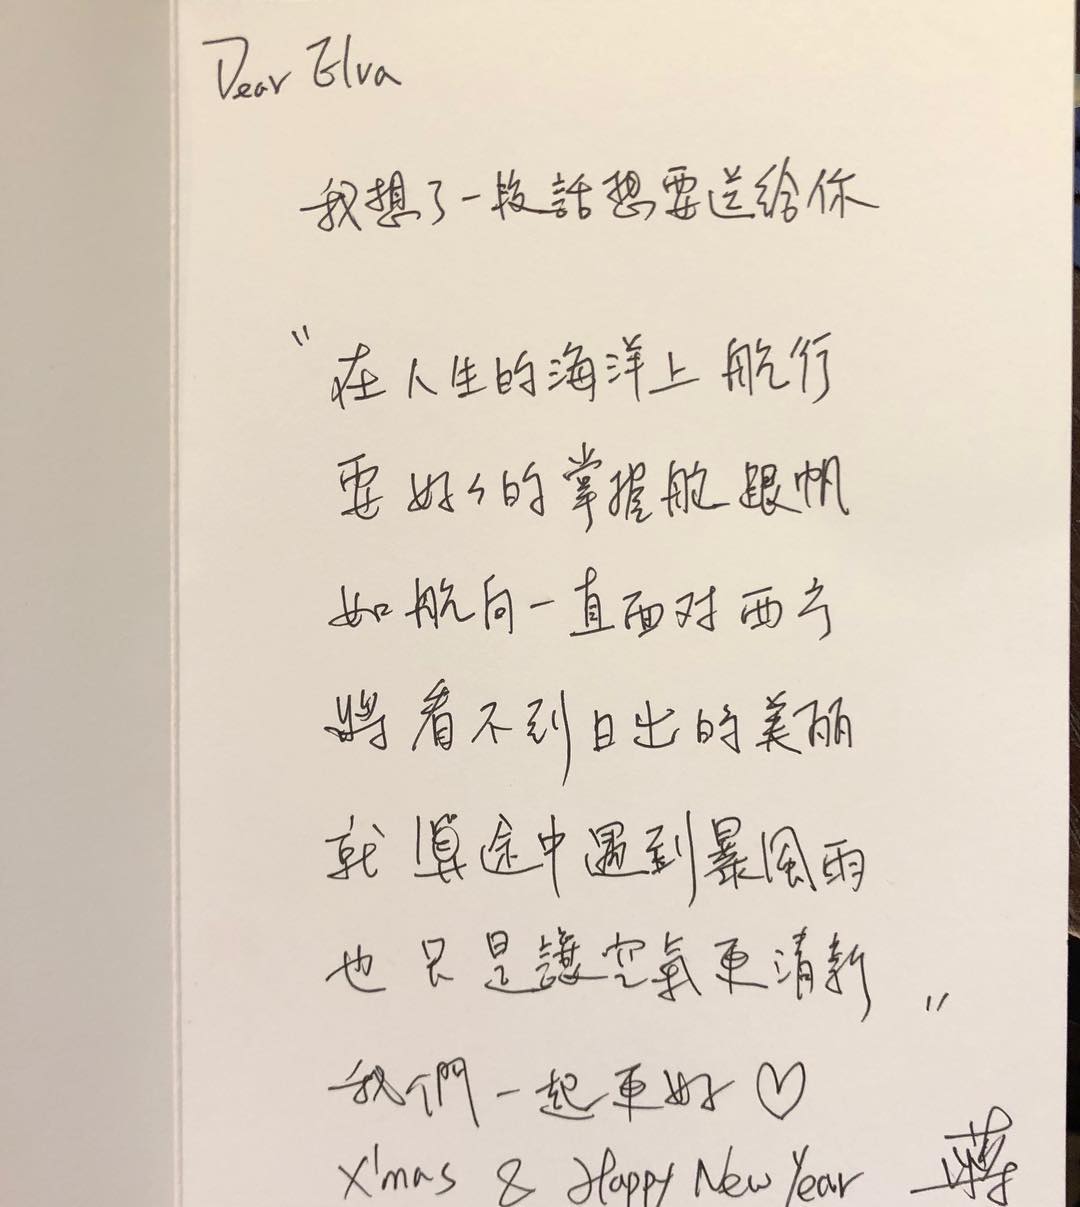 Dear Elva
我想了一段話想要送給你
"在人生的海洋上航行
要好好的掌握舵跟帆
如航向一直面对西方
將看不到日出的美丽
就算途中遇到暴風雨
也只是讓空氣更清新"
我們一起更好♡
X'mas & Happy New Year 蔣